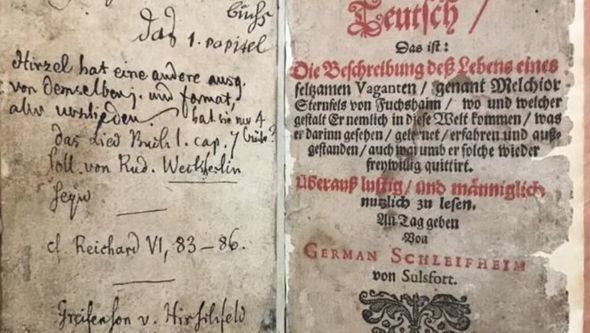 buchs
das 1. capitel
Hirzel hat eine andere ausg.
von demselben j. und format,
aber verschieden. hat sie nur 4
das Lied Buch 1. cap. 7
soll von Rud. Weckherlin
seyn
cf. Reichard VI, 83–86.
Greifenson v. Hirschfeld
Teutsch /
Das ist:
Die Beschreibung deß Lebens eines
seltzamen Vaganten / genant Melchior
Sternfels von Fuchshaim / wo und welcher
gestalt Er nemlich in diese Welt kommen / was
er darinn gesehen / gelernet / erfahren und auß-
gestanden / auch warumb er solche wieder
freywillig quittirt.
Überauß lustig / und männiglich
nutzlich zu lesen.
An Tag geben
Von
GERMAN SCHLEIFHEIM
von Sulsfort.